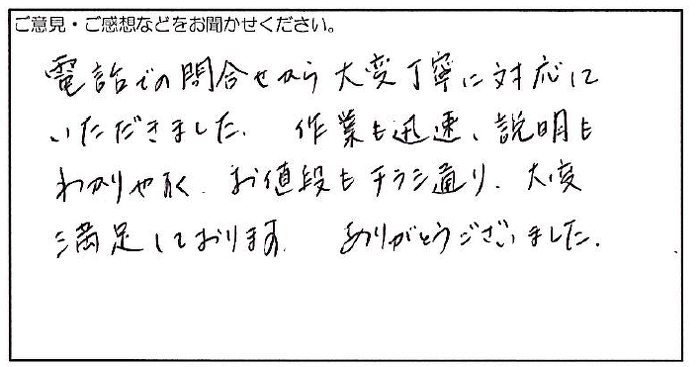 ご意見・ご感想などをお聞かせください。
電話での問合せから大変丁寧に対応して
いただきました。作業も迅速、説明も
わかりやすく、お値段もチラシ通り、大変
満足しております。ありがとうございました。